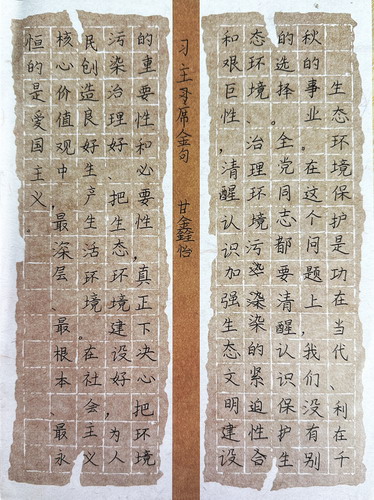 生态环境保护是功在当代、利在千
秋的事业。在这个问题上，我们没有别
的选择。全党同志都要清醒认识保护生
态环境、治理环境污染染染的紧迫性合
和艰巨性，清醒认识加强生态文明建设
习主席金句 甘鑫怡
的重要性和必要性，真正下决心把环境
污染治理好、把生态环境建设好，为人
民创造良好生产生活环境。在社会主义
核心价值观中，最深层、最根本、最永
恒的是爱国主义。